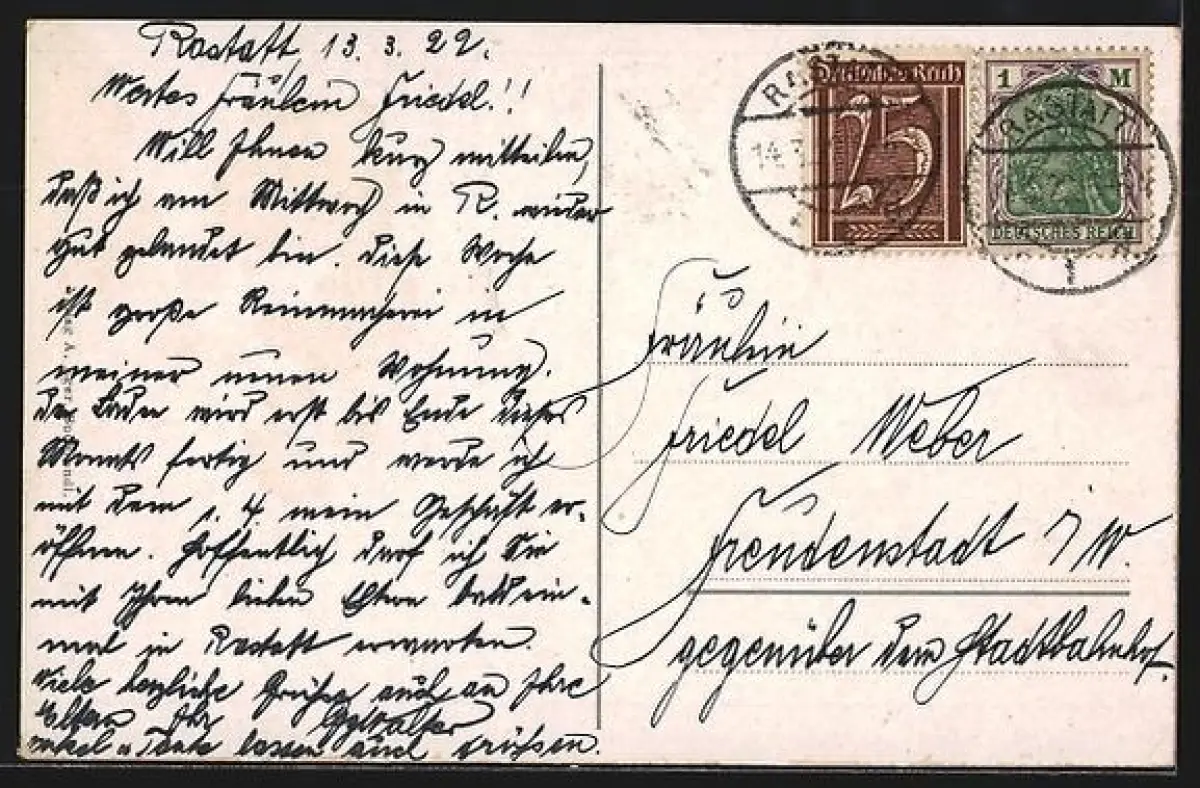 Rastatt, 13. 3. 22.
Wertes Fräulein Friedel!!
Will Ihnen kurz mitteilen,
daß ich am Mittwoch in R. wieder
gut gelandet bin. Diese Woche
ist große Reinmacherei in
meiner neuen Wohnung.
Der Laden wird erst bis Ende dieses
Monats fertig und werde ich
mit dem 1. 4. mein Geschäft er-
öffnen. Hoffentlich darf ich Sie
mit Ihren lieben Eltern bald ein-
mal in Rastatt erwarten.
Viele herzliche Grüße auch an Ihre
Eltern Ihr
Onkel u. Tante lassen auch grüssen.
Deutsches Reich
25
1 M
DEUTSCHES REICH
RASTATT
14.
RASTATT
Fräulein
Friedel Weber
Freudenstadt i/W.
gegenüber dem Stadtbahnhof.